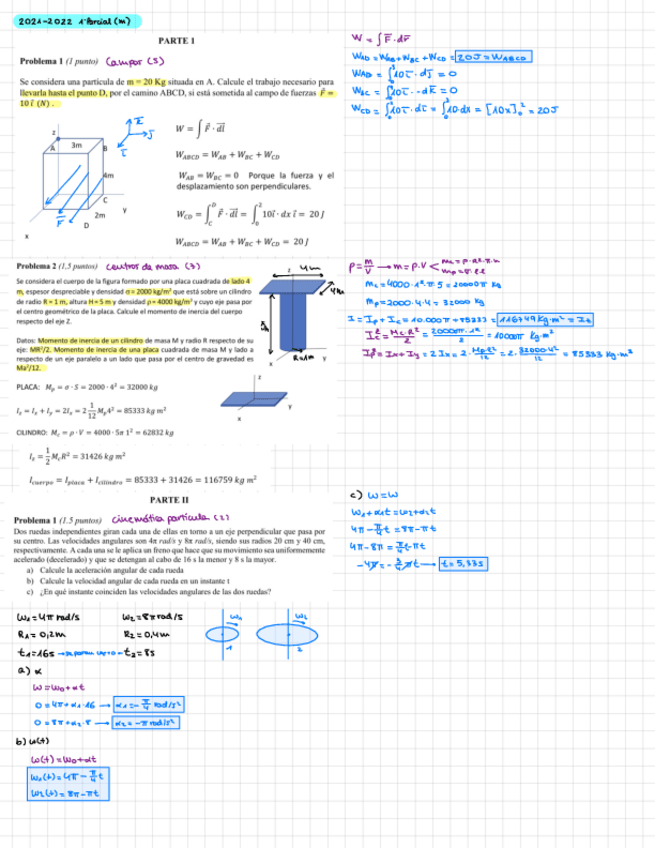 2021-2022 1º Parcial (M)
PARTE I
Problema 1 (1 punto) Campos (5)
Se considera una partícula de m = 20 Kg situada en A. Calcule el trabajo necesario para
llevarla hasta el punto D, por el camino ABCD, si está sometida al campo de fuerzas F⃗ =
10 î (N) .
z
A
3m
B
4m
C
2m
y
D
x
F
W = ∫ F⃗ · dl⃗
W_ABCD = W_AB + W_BC + W_CD
W_AB = W_BC = 0 Porque la fuerza y el
desplazamiento son perpendiculares.
W_CD = ∫_C^D F⃗ · dl⃗ = ∫_0^2 10î · dx î = 20 J
W_ABCD = W_AB + W_BC + W_CD = 20 J
W = ∫ F⃗ · dr⃗
W_AD = W_AB + W_BC + W_CD = 20J = W_ABCD
Problema 2 (1,5 puntos) Centros de masa (3)
Se considera el cuerpo de la figura formado por una placa cuadrada de lado 4
m, espesor despreciable y densidad σ = 2000 kg/m² que está sobre un cilindro
de radio R = 1 m, altura H = 5 m y densidad ρ = 4000 kg/m³ y cuyo eje pasa por
el centro geométrico de la placa. Calcule el momento de inercia del cuerpo
respecto del eje Z.
Datos: Momento de inercia de un cilindro de masa M y radio R respecto de su
eje: MR²/2. Momento de inercia de una placa cuadrada de masa M y lado a
respecto de un eje paralelo a un lado que pasa por el centro de gravedad es
Ma²/12.
PLACA: M_p = σ · S = 2000 · 4² = 32000 kg
I_z = I_x + I_y = 2I_x = 2 1/12 M_p4² = 85333 kg m²
CILINDRO: M_c = ρ · V = 4000 · 5π 1² = 62832 kg
I_z = 1/2 M_cR² = 31426 kg m²
I_cuerpo = I_placa + I_cilindro = 85333 + 31426 = 116759 kg m²
z
4m
R=1m
y
x
z
y
x
M_c = 4000 · 1² · π · 5 = 20000π Kg
M_p = 2000 · 4 · 4 = 32000 Kg
PARTE II
Problema 1 (1.5 puntos) Cinemática partícula (2)
Dos ruedas independientes giran cada una de ellas en torno a un eje perpendicular que pasa por
su centro. Las velocidades angulares son 4π rad/s y 8π rad/s, siendo sus radios 20 cm y 40 cm,
respectivamente. A cada una se le aplica un freno que hace que su movimiento sea uniformemente
acelerado (decelerado) y que se detengan al cabo de 16 s la menor y 8 s la mayor.
a) Calcule la aceleración angular de cada rueda
b) Calcule la velocidad angular de cada rueda en un instante t
c) ¿En qué instante coinciden las velocidades angulares de las dos ruedas?
ω₁=4π rad/s ω₂=8π rad/s
R₁=0,2m R₂=0,4m
t₁=16s t₂=8s
ω₁
ω₂
1
2
a) α
ω=ω₀+αt
0=4π+α₁·16 → α₁=-π/4 rad/s²
0=8π+α₂·8 → α₂=-π rad/s²
b) ω(t)
ω(t)=ω₀+αt
ω₁(t)=4π-π/4 t
ω₂(t)=8π-πt
c) ω=ω
ω₁+α₁t=ω₂+α₂t
4π-π/4 t=8π-πt
4π-8π=π/4 t-πt
-4π=-3/4 πt → t=5,33s